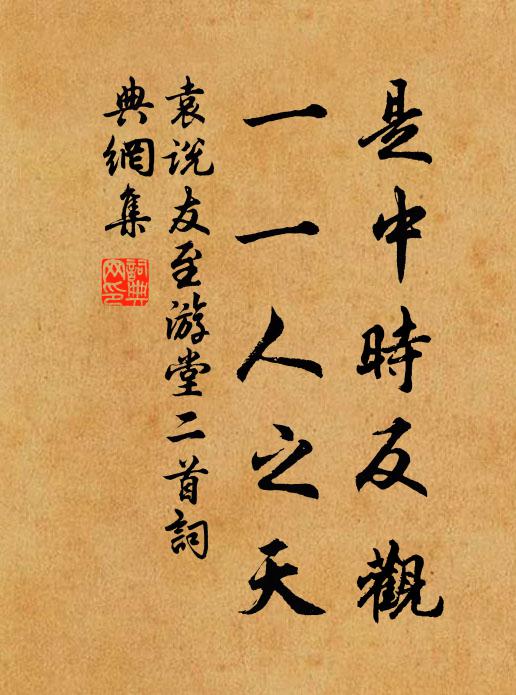 是中時反觀
一一人之天
袁說友至游堂二首詞
典網集
詞典網印